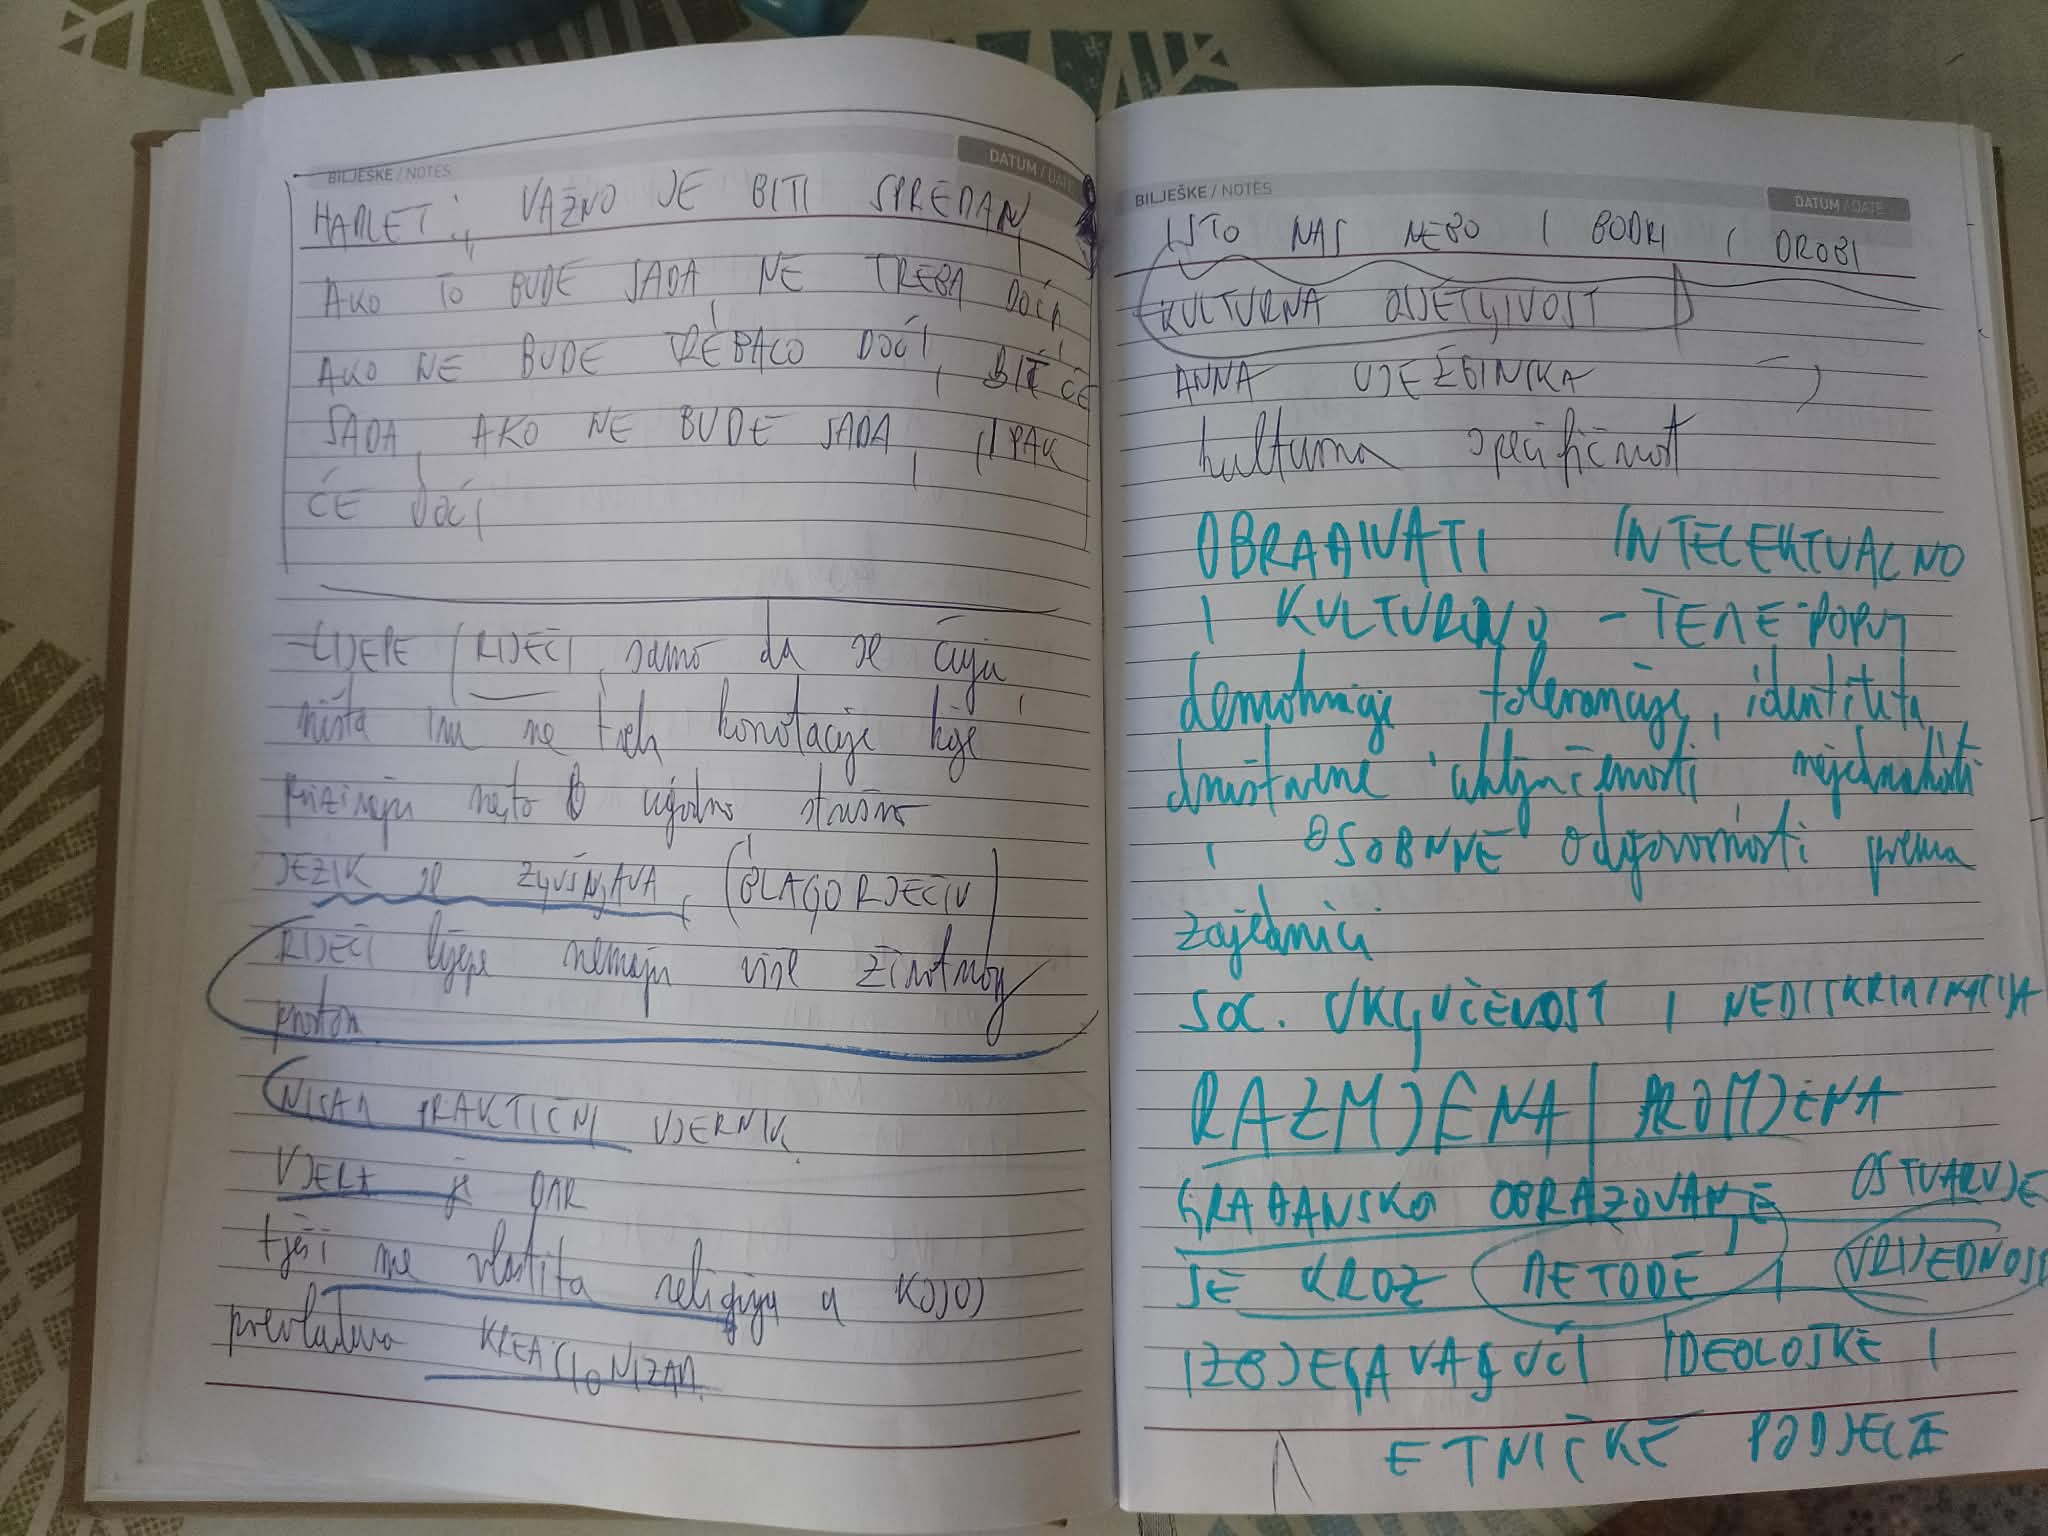 BILJEŠKE / NOTES
DATUM / DATE
HAMLET: VAŽNO JE BITI SPREMAN,
AKO TO BUDE SADA NE TREBA DOĆI,
AKO NE BUDE TREBALO DOĆI, BIT ĆE
SADA, AKO NE BUDE SADA, IPAK
ĆE DOĆI
-LIJEPE RIJEČI, samo da se čuju,
ništa im ne treba konotacije koje
prizivaju nešto ugodno strašno
JEZIK se ŽGUŠNJAVA, (BLAGORJEČIV)
RIJEČI lijepe nemaju više životnog
prostora
NISAM PRAKTIČNI VJERNIK.
VJERA je DAR
tješi me vlastita religija u KOJOJ
prevladava KREACIONIZAM.
BILJEŠKE / NOTES
DATUM / DATE
ISTO NAS NEBO I BODRI I DROBI
KULTURNA OSJETLJIVOST
ANNA VJEŽBINSKA
kulturna specifičnost
OBRAĐIVATI INTELEKTUALNO
I KULTURNO - TEME POPUT
demokracije tolerancije, identiteta,
društvene uključenosti nejednakosti
I OSOBNNE odgovornosti prema
zajednici
SOC. UKLJUČENOST I NEDISKRIMINACIJA
RAZMJENA | PROMJENA
GRAĐANSKO OBRAZOVANJE OSTVARUJE
SE KROZ METODE I VRIJEDNOSTI
IZBJEGAVAJUĆI IDEOLOŠKE I
ETNIČKE PODJELE